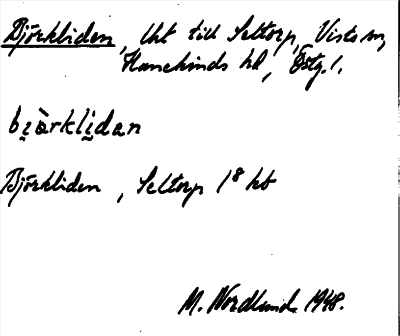 Björkliden, lht till Seltorp, Vists sn,
Hanekinds hd, Östg. l.
bi̯ä̀rkli̯dan
Björkliden, Seltorp 1⁸ hb
M. Nordlund 1948.